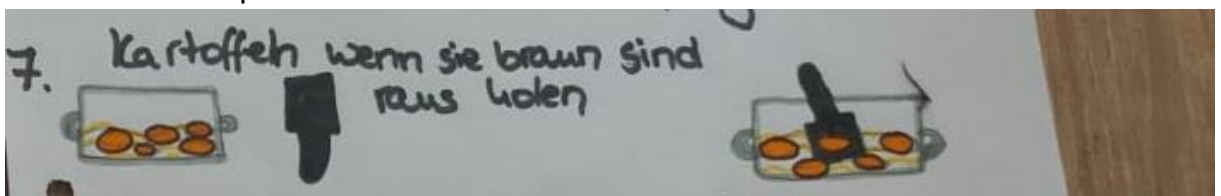 7. Kartoffeln wenn sie braun sind
raus holen